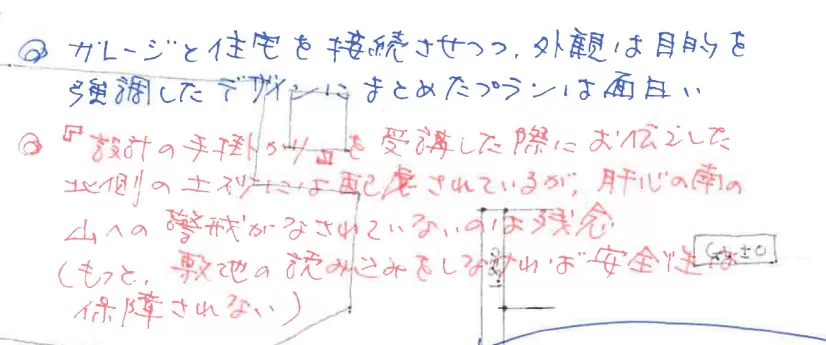 ◎ ガレージと住宅を接続させつつ、外観は目的を
強調したデザインにまとめたプランは面白い
◎ 『設計の手掛かり』を受講した際にお伝えした
北側の土砂には配慮されているが、肝心の南の
山への警戒がなされていないのは残念
(もっと、敷地の読み込みをしなければ安全性は
保障されない)
±0